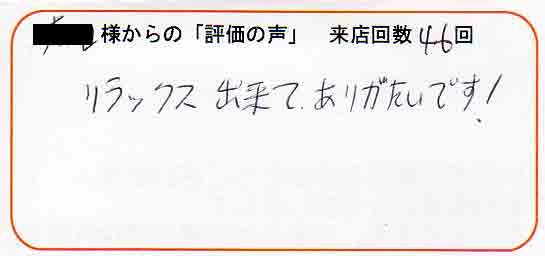 様からの「評価の声」 来店回数46回
リラックス出来て、ありがたいです!